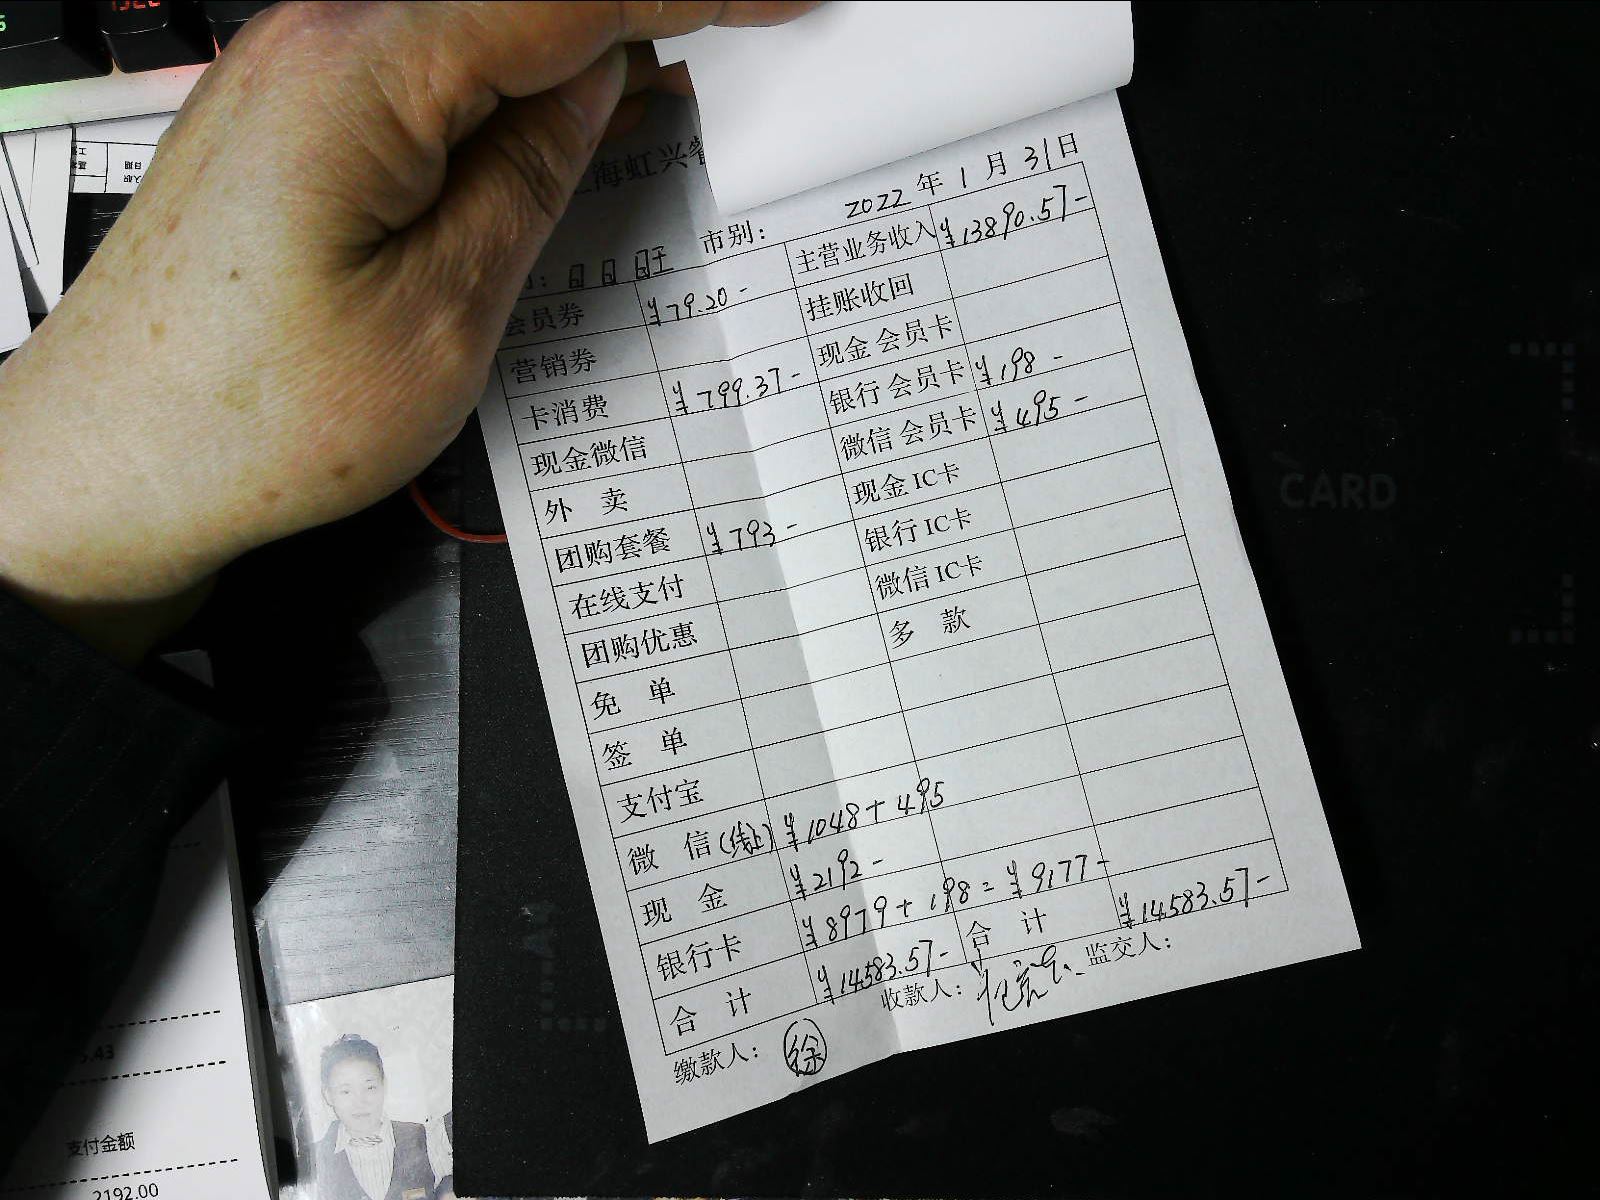 海虹兴
2022年1月31日
市别：
日日旺
会员券 ¥79.20- 主营业务收入 ¥13890.57-
营销券 挂账收回
卡消费 ¥799.37- 现金会员卡
现金微信 银行会员卡 ¥198-
外 卖 微信会员卡 ¥495-
团购套餐 ¥793- 现金IC卡
在线支付 银行IC卡
团购优惠 微信IC卡
免 单 多 款
签 单
支付宝
微 信(线上) ¥1048+495
现 金 ¥2192-
银行卡 ¥8979+198=¥9177-
合 计 ¥14583.57- 合 计 ¥14583.57-
缴款人：徐 收款人： 监交人：
CARD
5.43
支付金额
2192.00